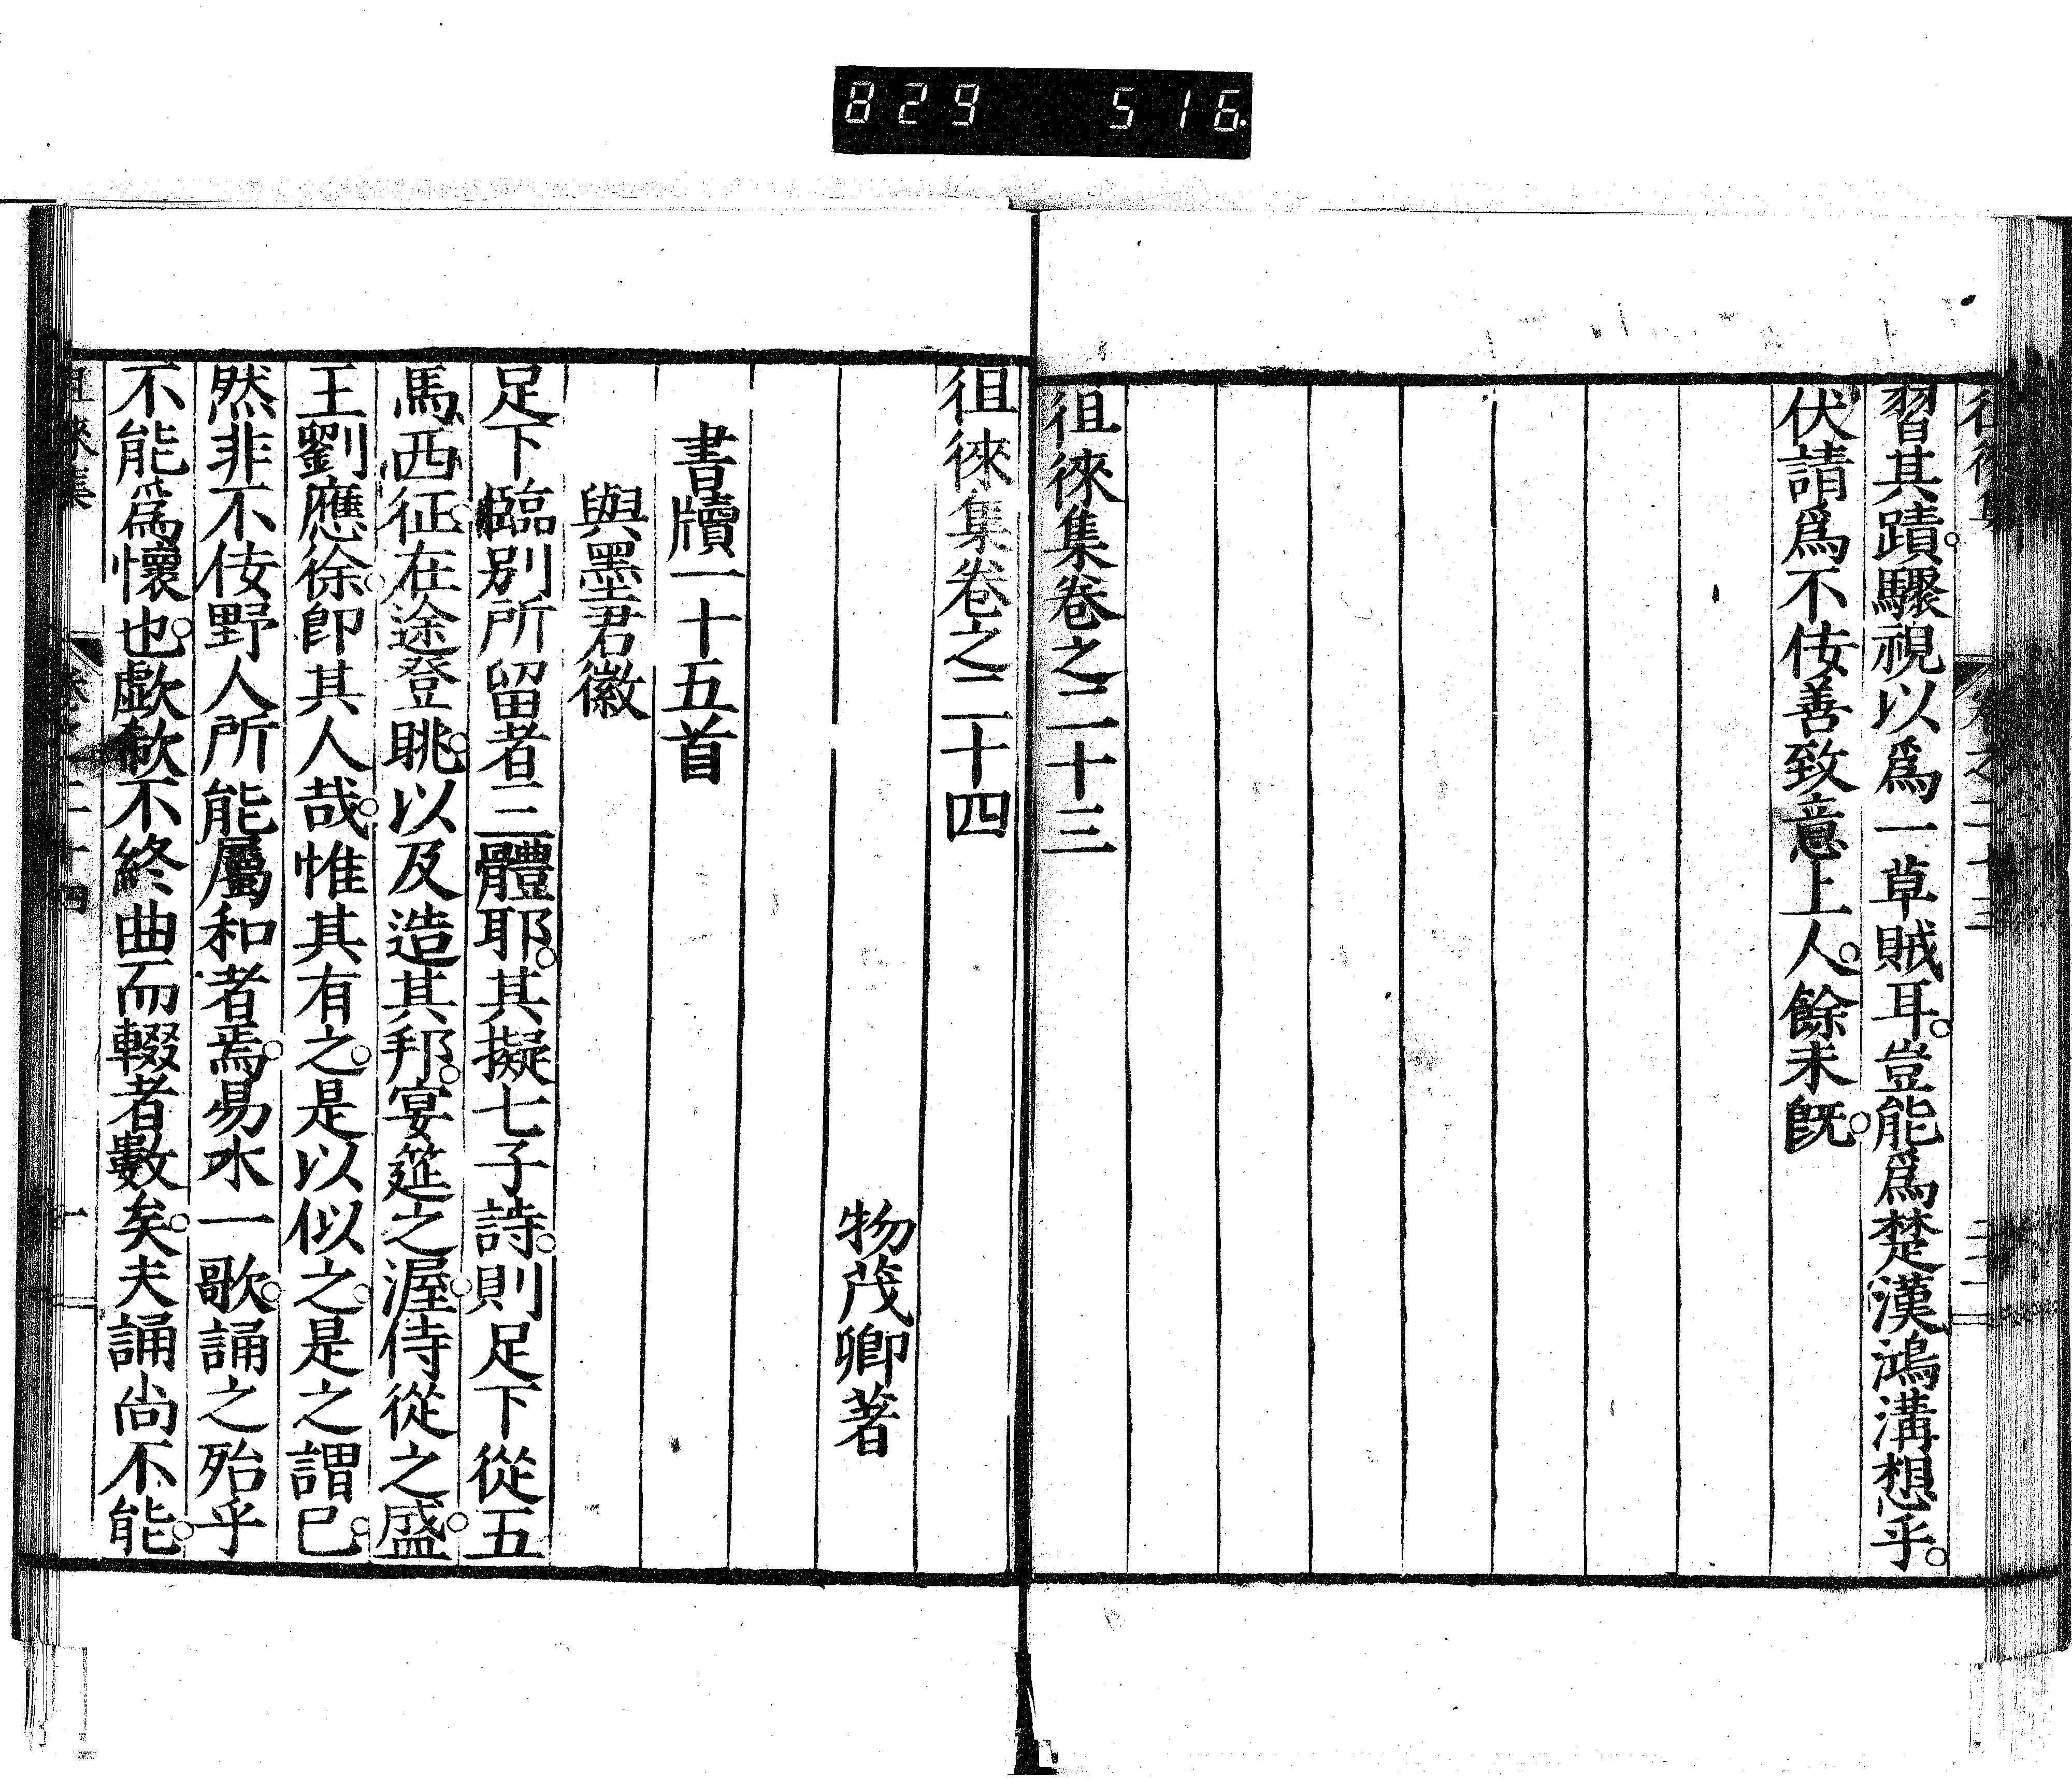 829 516
習其蹟。驟視以爲一草賊耳。豈能爲楚漢鴻溝想乎。
伏請爲不佞善致意上人。餘未旣。
徂徠集卷之二十三
徂徠集卷之二十四
物茂卿著
書牘一十五首
與墨君徽
足下臨別所留者三體耶。其擬七子詩。則足下從五
馬西征。在途登眺。以及造其邦。宴筵之渥。侍從之盛。
王劉應徐。卽其人哉。惟其有之。是以似之。是之謂已。
然非不佞野人所能屬和者焉。易水一歌。誦之殆乎
不能爲懷也。歔欷不終曲而輟者數矣。夫誦尚不能。
徂徠集 卷之二十四 一